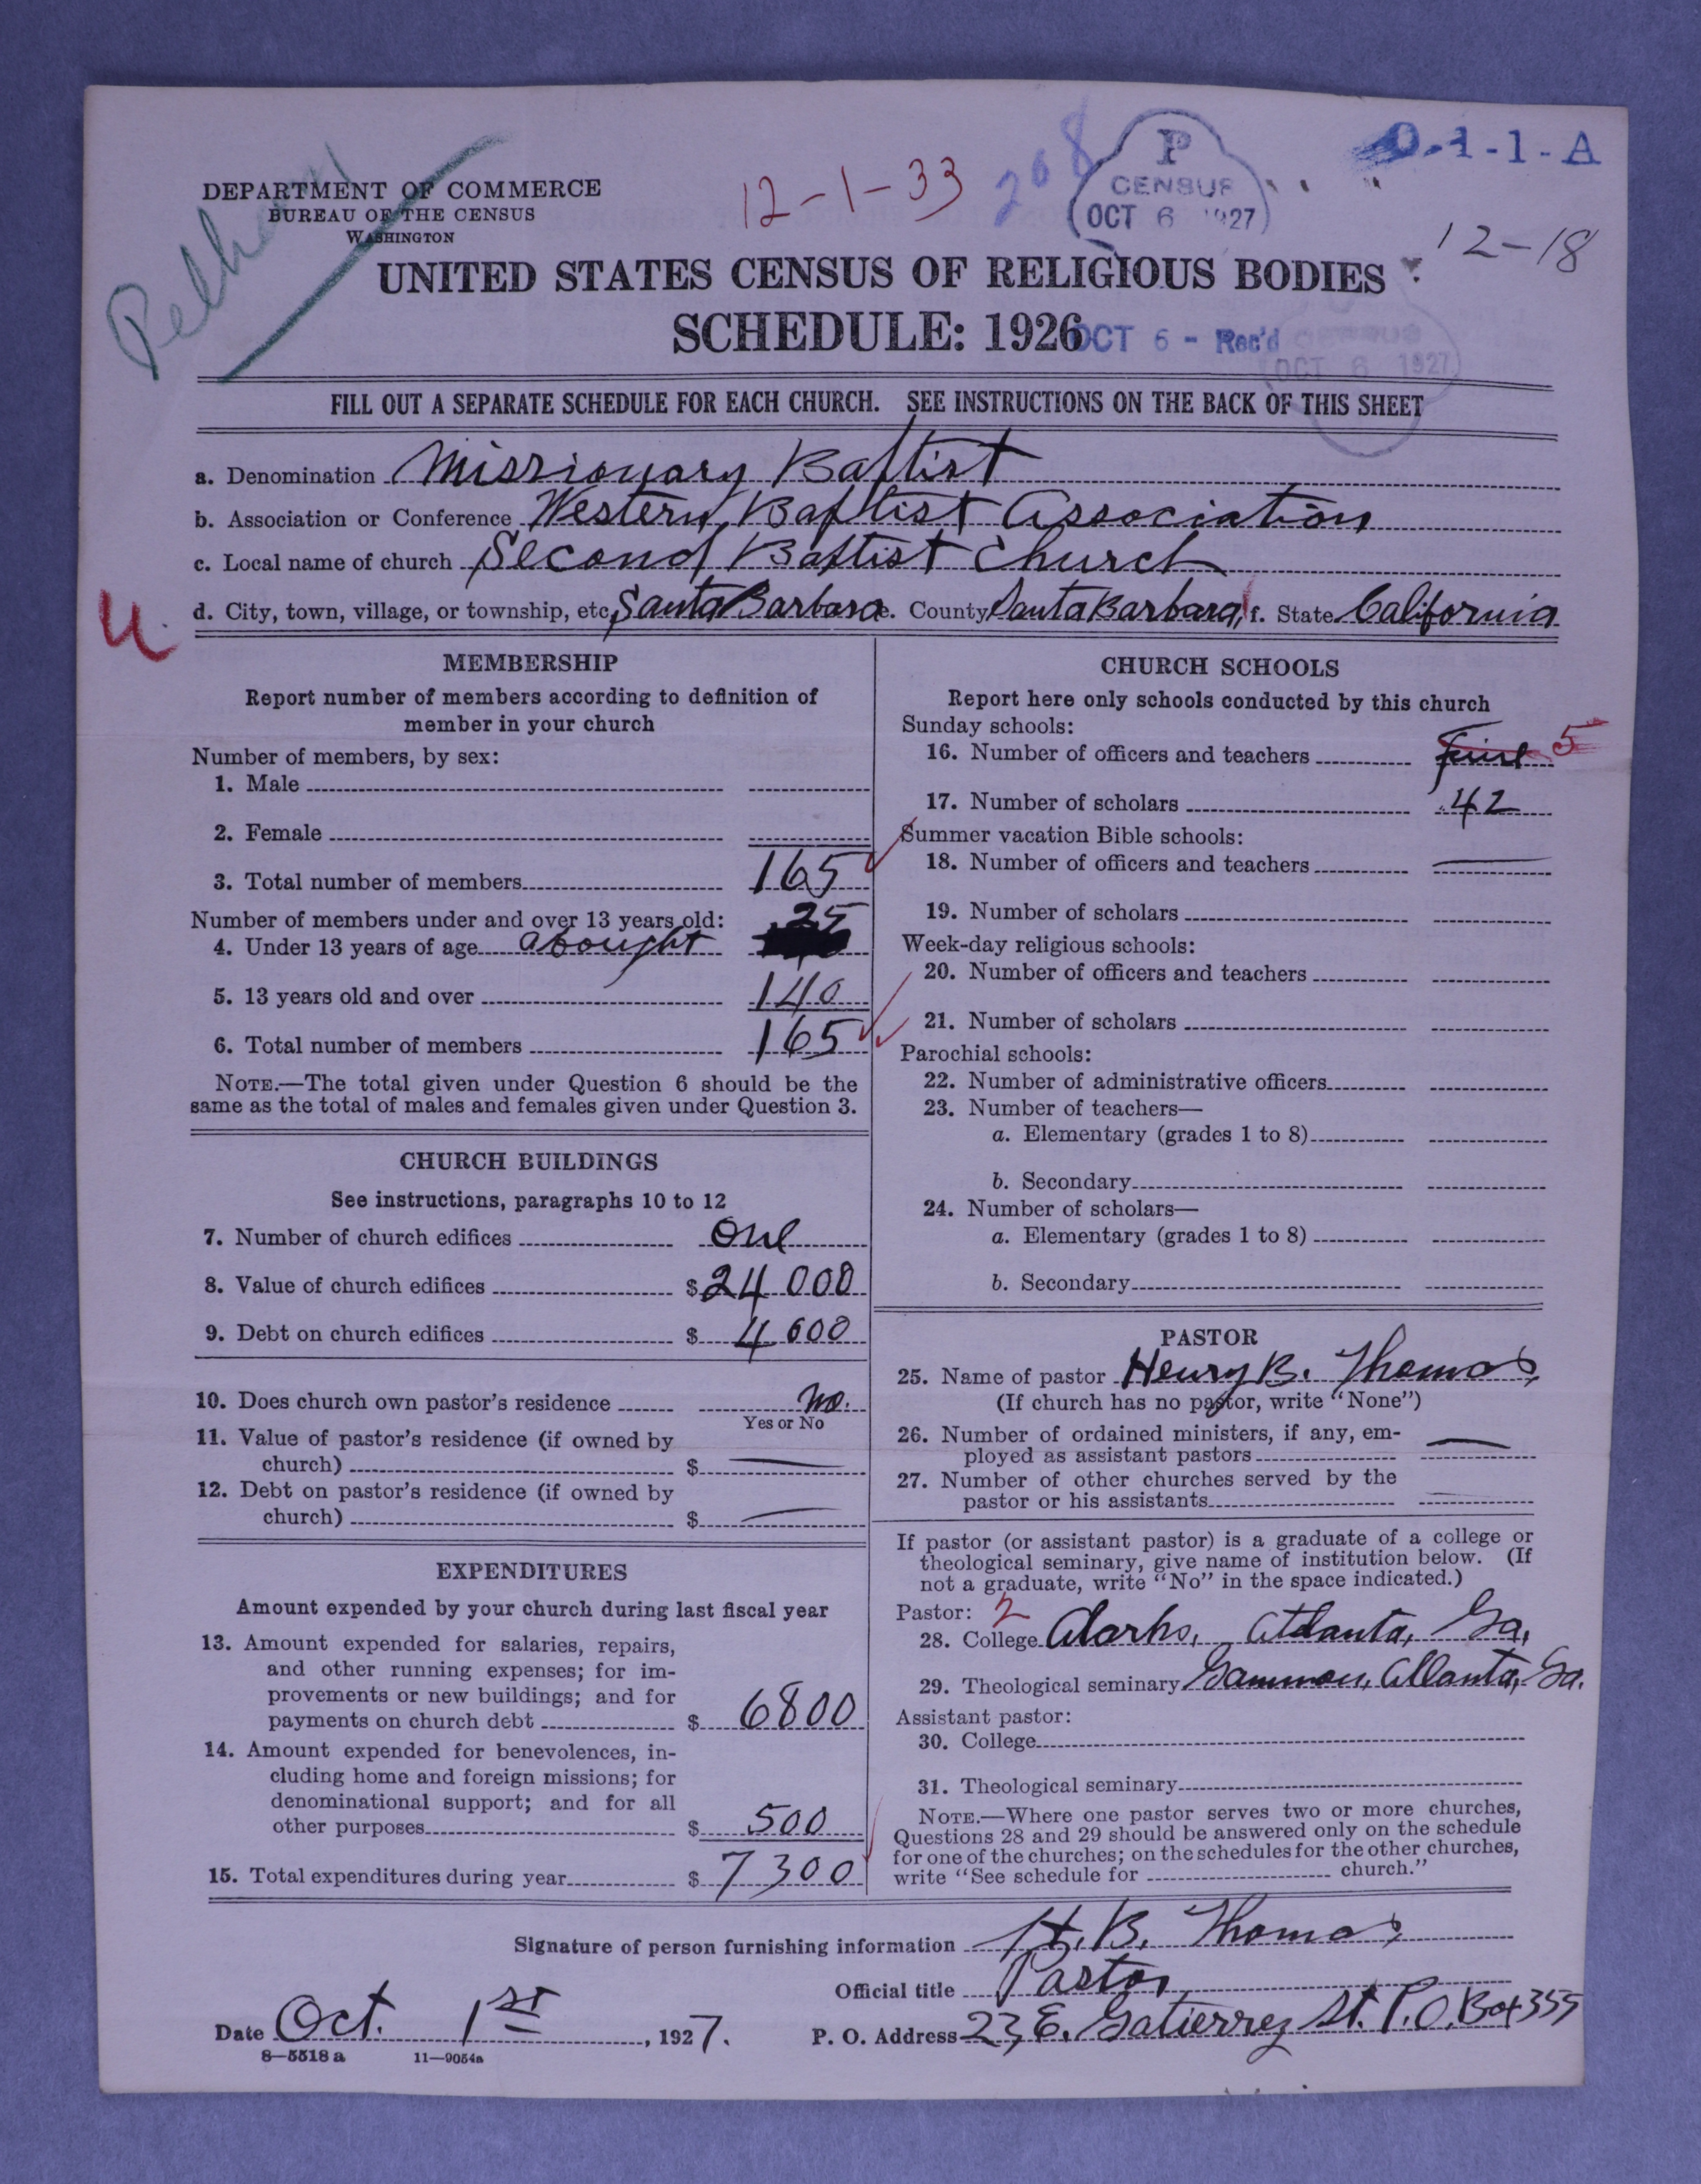 Pelham
DEPARTMENT OF COMMERCE
BUREAU OF THE CENSUS
WASHINGTON
12-1-33
208
P
CENSUS
OCT 6 1927
0-1-1-A
12-18
UNITED STATES CENSUS OF RELIGIOUS BODIES
SCHEDULE: 1926
OCT 6 - Rec'd
CENSUS
OCT 6 1927
FILL OUT A SEPARATE SCHEDULE FOR EACH CHURCH. SEE INSTRUCTIONS ON THE BACK OF THIS SHEET
a. Denomination Missionary Baptist
b. Association or Conference Western Baptist Association
c. Local name of church Second Baptist Church
U
d. City, town, village, or township, etc. Santa Barbara e. County Santa Barbara f. State California
MEMBERSHIP
Report number of members according to definition of
member in your church
Number of members, by sex:
1. Male
2. Female
3. Total number of members 165
Number of members under and over 13 years old:
4. Under 13 years of age abought 25
5. 13 years old and over 140
6. Total number of members 165
NOTE.—The total given under Question 6 should be the
same as the total of males and females given under Question 3.
CHURCH BUILDINGS
See instructions, paragraphs 10 to 12
7. Number of church edifices One
8. Value of church edifices $ 24 000
9. Debt on church edifices $ 4 600
10. Does church own pastor's residence No.
Yes or No
11. Value of pastor's residence (if owned by
church) $ —
12. Debt on pastor's residence (if owned by
church) $ —
EXPENDITURES
Amount expended by your church during last fiscal year
13. Amount expended for salaries, repairs,
and other running expenses; for im-
provements or new buildings; and for
payments on church debt $ 6800
14. Amount expended for benevolences, in-
cluding home and foreign missions; for
denominational support; and for all
other purposes $ 500
15. Total expenditures during year $ 7300
CHURCH SCHOOLS
Report here only schools conducted by this church
Sunday schools:
16. Number of officers and teachers five 5
17. Number of scholars 42
Summer vacation Bible schools:
18. Number of officers and teachers —
19. Number of scholars
Week-day religious schools:
20. Number of officers and teachers
21. Number of scholars
Parochial schools:
22. Number of administrative officers
23. Number of teachers—
a. Elementary (grades 1 to 8)
b. Secondary
24. Number of scholars—
a. Elementary (grades 1 to 8)
b. Secondary
PASTOR
25. Name of pastor Henry B. Thomas
(If church has no pastor, write "None")
26. Number of ordained ministers, if any, em-
ployed as assistant pastors —
27. Number of other churches served by the
pastor or his assistants —
If pastor (or assistant pastor) is a graduate of a college or
theological seminary, give name of institution below. (If
not a graduate, write "No" in the space indicated.)
Pastor: 2
28. College Clarks, Atlanta, Ga.
29. Theological seminary Gammon, Atlanta, Ga.
Assistant pastor:
30. College
31. Theological seminary
NOTE.—Where one pastor serves two or more churches,
Questions 28 and 29 should be answered only on the schedule
for one of the churches; on the schedules for the other churches,
write "See schedule for church."
Signature of person furnishing information H. B. Thomas
Official title Pastor
Date Oct. 1st, 1927. P. O. Address 23 E. Gatierrez St. P.O. Box 355
8—5518 a 11—9054a